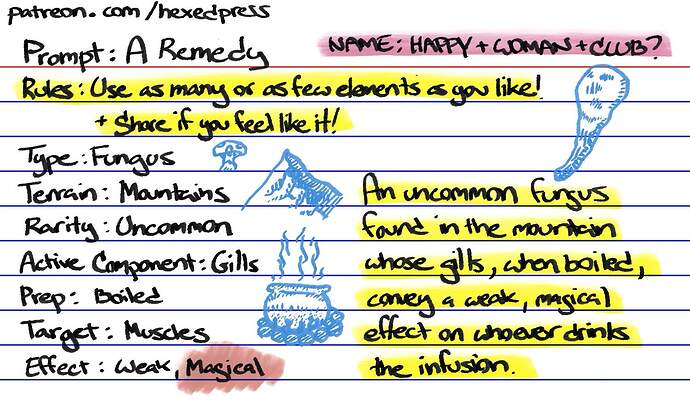 patreon.com/hexedpress
Prompt: A Remedy
NAME: HAPPY + WOMAN + CLUB?
Rules: Use as many or as few elements as you like!
+ Share if you feel like it!
Type: Fungus
Terrain: Mountains
Rarity: Uncommon
Active Component: Gills
Prep: Boiled
Target: Muscles
Effect: Weak, Magical
An uncommon fungus
found in the mountain
whose gills, when boiled,
convey a weak, magical
effect on whoever drinks
the infusion.